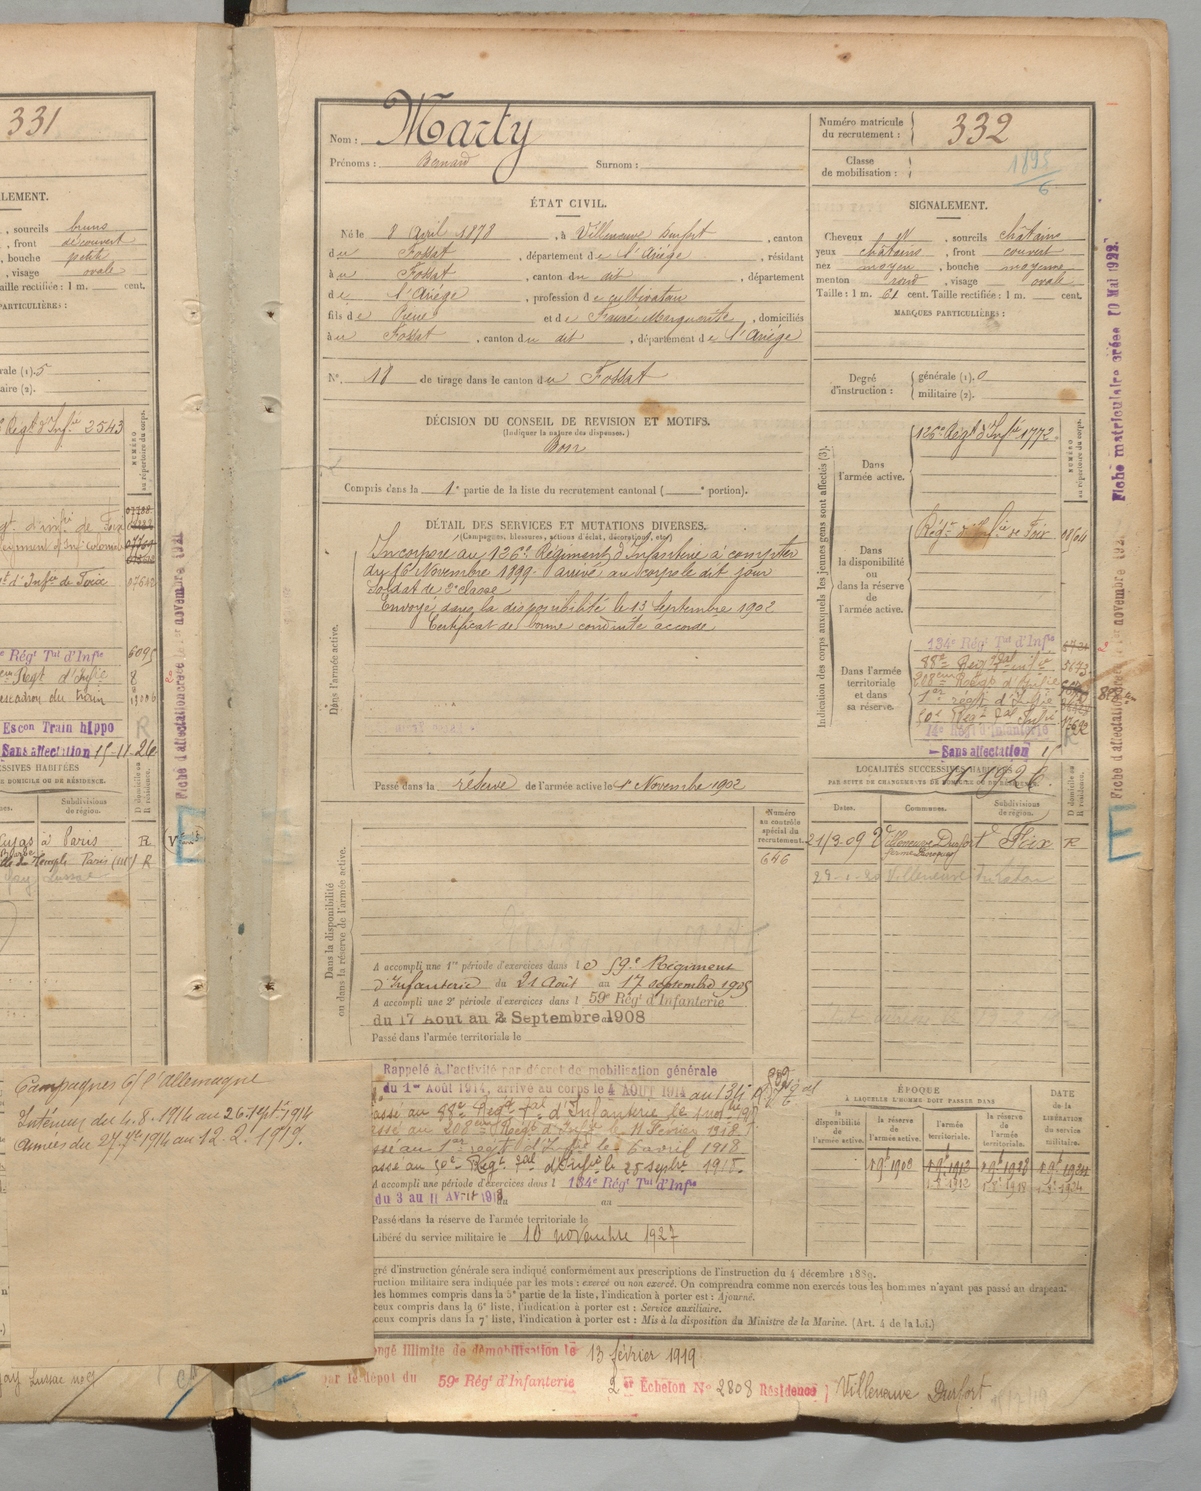 331
LEMENT.
, sourcils bruns
, front découvert
, bouche petite
, visage ovale
Taille rectifiée : 1 m. cent.
PARTICULIÈRES :
rale (1). 5
aire (2).
Régt d'Infie 2543
NUMÉRO
au répertoire du corps.
d'Infie de Foix
gt d'Infie de Foix
Régt Tal d'Infie 6095
Regt d'Infie 8
escadron du train
Escon Train hippo R
Sans affectation 15-11-26
SSIVES HABITÉES
DE DOMICILE OU DE RÉSIDENCE.
D domicile ou R résidence.
Subdivisions
de région.
à Paris R
Temple Paris R
Fiche d'affectation créée le 1er novembre 1921
Nom : Marty
Prénoms : Bernard Surnom :
Numéro matricule
du recrutement : 332
Classe
de mobilisation : 1895
6
ÉTAT CIVIL.
Né le 8 Avril 1878, à Villeneuve Durfort, canton
du Fossat, département de l'Ariège, résidant
à u Fossat, canton du dit, département
de l'Ariège, profession de cultivateur
fils de Pierre et de Fauré Marguerite, domiciliés
à u Fossat, canton du dit, département de l'Ariège
N°. 18 de tirage dans le canton du Fossat
SIGNALEMENT.
Cheveux, sourcils châtains
yeux châtains, front couvert
nez moyen, bouche moyenne
menton rond, visage ovale
Taille : 1 m. 61 cent. Taille rectifiée : 1 m. cent.
MARQUES PARTICULIÈRES :
Degré
d'instruction :
générale (1). 0
militaire (2).
DÉCISION DU CONSEIL DE REVISION ET MOTIFS.
(Indiquer la nature des dispenses.)
Bon
Compris dans la 1e partie de la liste du recrutement cantonal ( e portion).
DÉTAIL DES SERVICES ET MUTATIONS DIVERSES.
(Campagnes, blessures, actions d'éclat, décorations, etc.)
Dans l'armée active.
Incorporé au 126e Régiment d'Infanterie à compter
du 16 Novembre 1899. arrivé au corps le dit jour
Soldat de 2e classe
Envoyé dans la disponibilité le 13 Septembre 1902
Certificat de bonne conduite accordé
Passé dans la réserve de l'armée active le 1er Novembre 1902
Indication des corps auxquels les jeunes gens sont affectés (3).
Dans
l'armée active.
126e Régt d'Infie 1772
NUMÉRO
au répertoire du corps.
Dans
la disponibilité
ou
dans la réserve
de
l'armée active.
Régt d'Infie de Foix
Dans l'armée
territoriale
et dans
sa réserve.
134e Régt Tal d'Infie
88e Régt Tal d'Infie
208eme Régt d'Infie
1er régt d'Infie
50e Régt Tal Infie
14e Régt d'Infanterie
Sans affectation
Fiche matriculaire créée 10 Mai 1922.
Fiche d'affectation créée le 1er novembre 192
LOCALITÉS SUCCESSIVES HABITÉES
PAR SUITE DE CHANGEMENTS DE DOMICILE OU DE RÉSIDENCE.
11 1926
D domicile ou R résidence.
Dates. Communes. Subdivisions
de région.
21/3.09 Villeneuve Durfort Foix R
Villeneuve
Numéro
au contrôle
spécial du
recrutement.
646
Dans la disponibilité
ou dans la réserve de l'armée active.
A accompli une 1re période d'exercices dans le 59e Régiment
d'Infanterie du 21 Août au 17 septembre 1905
A accompli une 2e période d'exercices dans l 59e Régt d'Infanterie
du 17 Aout au 2 Septembre 1908
Passé dans l'armée territoriale le
Rappelé à l'activité par décret de mobilisation générale
du 1er Août 1914, arrivé au corps le 4 AOUT 1914 au 134
assé au 88e Régt Tal d'Infanterie le
assé au 208eme Régt d'Infie le 11 Février 1918.
ssé au 1er régt d'Infie le 6 avril 1918
assé au 50e Régt Tal d'Infie le 25 septbre 1915.
A accompli une période d'exercices dans l 134e Régt Tal d'Infie
du 3 au 11 Avril 191
Passé dans la réserve de l'armée territoriale le
Libéré du service militaire le 10 novembre 1927
ÉPOQUE
À LAQUELLE L'HOMME DOIT PASSER DANS
la
disponibilité
de
l'armée active.
la réserve
de
l'armée active.
l'armée
territoriale.
la réserve
de l'armée
territoriale.
DATE
de la
LIBÉRATION
du service
militaire.
Campagnes C/ l'Allemagne
Intérieur du 4.8.1914 au 26.7bre 1914
Armées du 27.7bre 1914 au 12.2.1919.
gré d'instruction générale sera indiqué conformément aux prescriptions de l'instruction du 4 décembre 1889.
ruction militaire sera indiquée par les mots : exercé ou non exercé. On comprendra comme non exercés tous les hommes n'ayant pas passé au drapeau.
les hommes compris dans la 5e partie de la liste, l'indication à porter est : Ajourné.
ceux compris dans la 6e liste, l'indication à porter est : Service auxiliaire.
ceux compris dans la 7e liste, l'indication à porter est : Mis à la disposition du Ministre de la Marine. (Art. 4 de la loi.)
ongé Illimité de démobilisation le 13 février 1919
par le dépôt du 59e Régt d'Infanterie 2er Échelon No 2808 Résidence Villeneuve Durfort